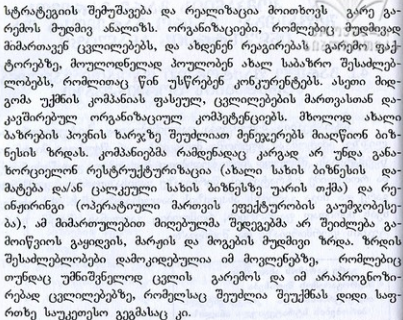 სტრატეგიის შემუშავება და რეალიზაცია მოითხოვს გარე გა-
რემოს მუდმივ ანალიზს. ორგანიზაციები, რომლებიც მუდმივად
მიმართავენ ცვლილებებს, და ახდენენ რეაგირებას გარემო ფაქ-
ტორებზე, მოულოდნელად პოულობენ ახალ საბაზრო შესაძლებ-
ლობებს, რომლითაც წინ უსწრებენ კონკურენტებს. ასეთი მიდ-
გომა უქმნის კომპანიას ფასეულ, ცვლილებების მართვასთან და-
კავშირებულ ორგანიზაციულ კომპეტენციებს. მხოლოდ ახალი
ბაზრების პოვნის ხარჯზე შეუძლიათ მენეჯერებს მიაღწიონ ბიზ-
ნესის ზრდას. კომპანიებმა რამდენადაც კარგად არ უნდა განა-
ხორციელონ რესტრუქტურიზაცია (ახალი სახის ბიზნესის და-
მატება და/ან ცალკეული სახის ბიზნესზე უარის თქმა) და რე-
ინჟირინგი (ოპერატიული მართვის ეფექტურობის გაუმჯობესე-
ბა), ამ მიმართულებით მიღებულმა შედეგებმა არ შეიძლება გა-
მოიწვიოს გაყიდვის, მარჟის და მოგების მუდმივი ზრდა. ზრდის
შესაძლებლობები დამოკიდებულია იმ მოვლენებზე, რომლებიც
თუნდაც უმნიშვნელოდ ცვლის გარემოს და იმ არაპროგნოზი-
რებად ცვლილებებზე, რომელსაც შეუძლია შეუქმნას დიდი საფ-
რთხე საუკეთესო გეგმასაც კი.